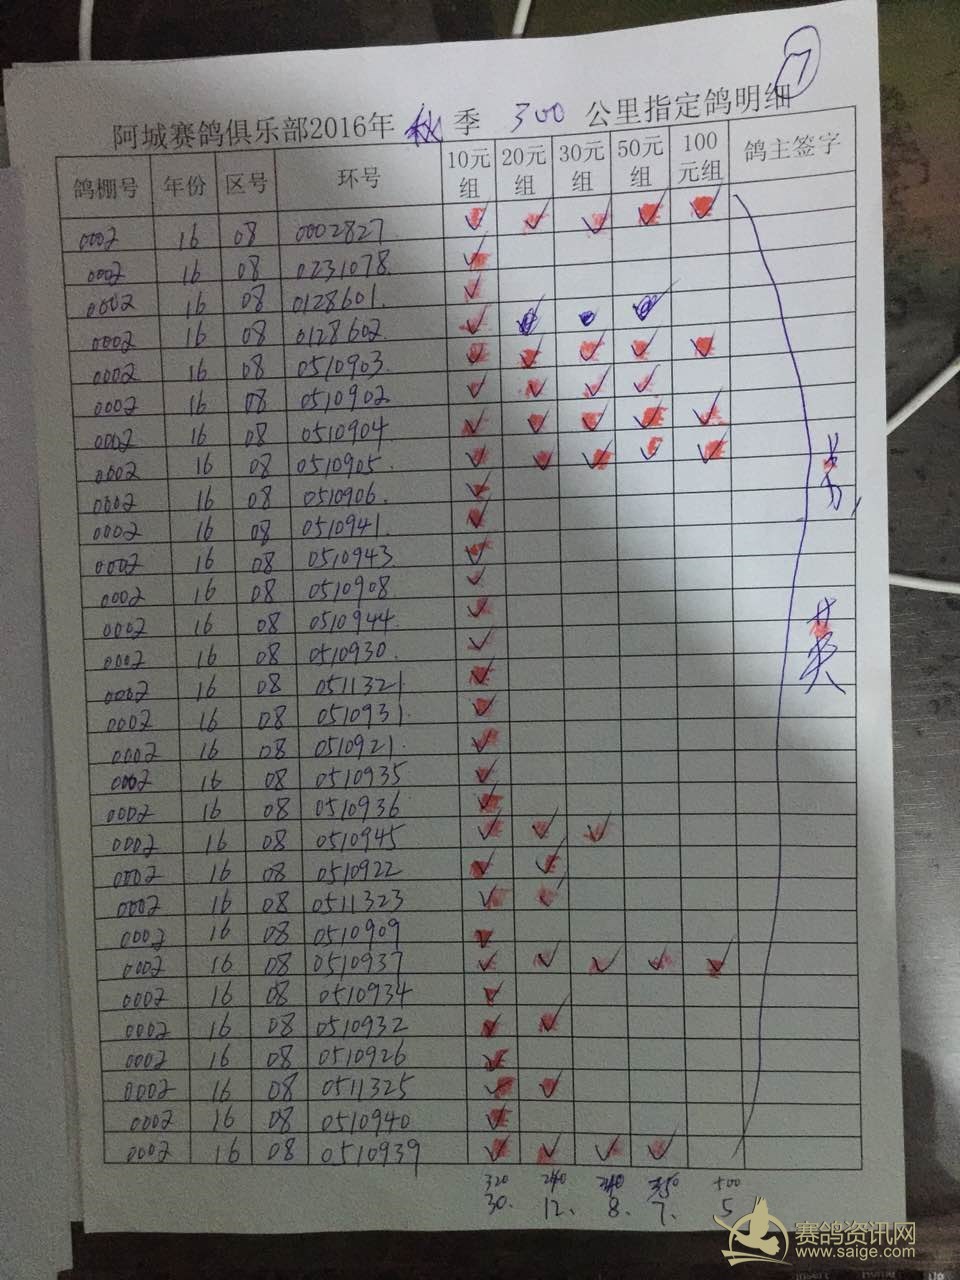 7
阿城赛鸽俱乐部2016年 秋 季 300 公里指定鸽明细
鸽棚号 年份 区号 环号 10元组 20元组 30元组 50元组 100元组 鸽主签字
0002 16 08 0002827 ✓ ✓ ✓ ✓ ✓
0002 16 08 0231078 ✓
0002 16 08 0128601 ✓
0002 16 08 0128602 ✓
0002 16 08 0510903 ✓ ✓ ✓ ✓ ✓
0002 16 08 0510902 ✓ ✓ ✓ ✓
0002 16 08 0510904 ✓ ✓ ✓ ✓ ✓
0002 16 08 0510905 ✓ ✓ ✓ ✓ ✓
0002 16 08 0510906 ✓
0002 16 08 0510941 ✓
0002 16 08 0510943 ✓
0002 16 08 0510908 ✓
0002 16 08 0510944 ✓
0002 16 08 0510930 ✓
0002 16 08 0511321 ✓
0002 16 08 0510931 ✓
0002 16 08 0510921 ✓
0002 16 08 0510935 ✓
0002 16 08 0510936 ✓
0002 16 08 0510945 ✓ ✓ ✓
0002 16 08 0510922 ✓ ✓
0002 16 08 0511323 ✓ ✓
0002 16 08 0510909 ✓
0002 16 08 0510937 ✓ ✓ ✓ ✓ ✓
0002 16 08 0510934 ✓
0002 16 08 0510932 ✓ ✓
0002 16 08 0510926 ✓
0002 16 08 0511325 ✓ ✓
0002 16 08 0510940 ✓
0002 16 08 0510939 ✓ ✓ ✓ ✓
英
320 240 240 350 500
30. 12. 8. 7. 5
赛鸽资讯网
www.saige.com